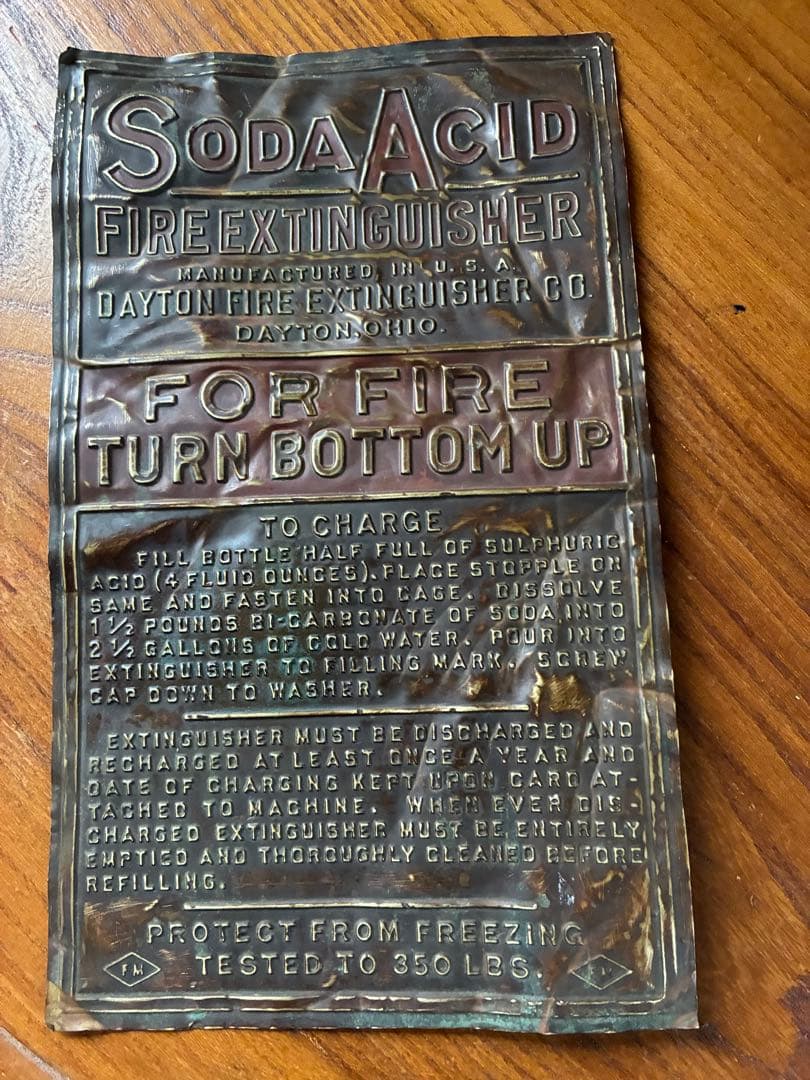 SODA ACID
FIRE EXTINGUISHER
MANUFACTURED IN U.S.A.
DAYTON FIRE EXTINGUISHER CO.
DAYTON, OHIO.
FOR FIRE
TURN BOTTOM UP
TO CHARGE
FILL BOTTLE HALF FULL OF SULPHURIC
ACID (4 FLUID OUNCES). PLACE STOPPLE ON
SAME AND FASTEN INTO CAGE. DISSOLVE
1 1/2 POUNDS BI-CARBONATE OF SODA INTO
2 1/2 GALLONS OF COLD WATER. POUR INTO
EXTINGUISHER TO FILLING MARK. SCREW
CAP DOWN TO WASHER.
EXTINGUISHER MUST BE DISCHARGED AND
RECHARGED AT LEAST ONCE A YEAR AND
DATE OF CHARGING KEPT UPON CARD AT-
TACHED TO MACHINE. WHEN EVER DIS-
CHARGED EXTINGUISHER MUST BE ENTIRELY
EMPTIED AND THOROUGHLY CLEANED BEFORE
REFILLING.
PROTECT FROM FREEZING
FM TESTED TO 350 LBS. FM